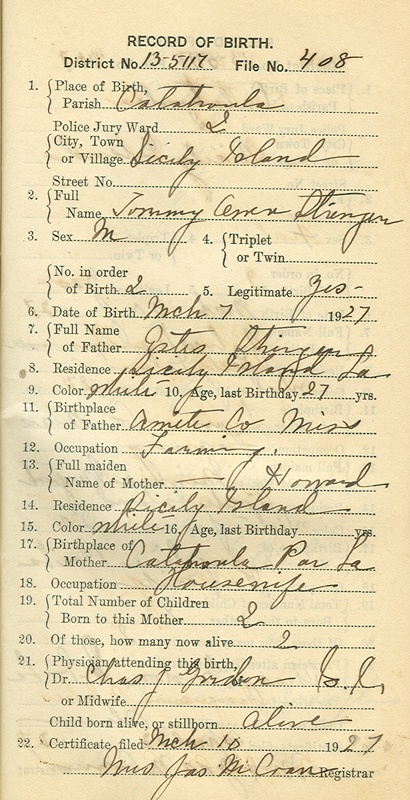 RECORD OF BIRTH.
District No. 13-5117 File No. 408
1. Place of Birth, Parish Catahoula
Police Jury Ward 2
City, Town or Village Sicily Island
Street No.
2. Full Name Tommy Stringer
3. Sex M 4. Triplet or Twin
No. in order of Birth 2 5. Legitimate Yes-
6. Date of Birth Mch 7 1927
7. Full Name of Father Stringer
8. Residence Sicily Island La
9. Color White 10. Age, last Birthday 27 yrs.
11. Birthplace of Father Amite Co Miss
12. Occupation Farming.
13. Full maiden Name of Mother — Howard
14. Residence Sicily Island
15. Color White 16. Age, last Birthday yrs.
17. Birthplace of Mother Catahoula Par La
18. Occupation Housewife
19. Total Number of Children Born to this Mother 2
20. Of those, how many now alive 2
21. Physician attending this birth, Dr. Chas J Gordon S. I.
or Midwife
Child born alive, or stillborn alive
22. Certificate filed Mch 10 1927
Mrs Jas. Registrar